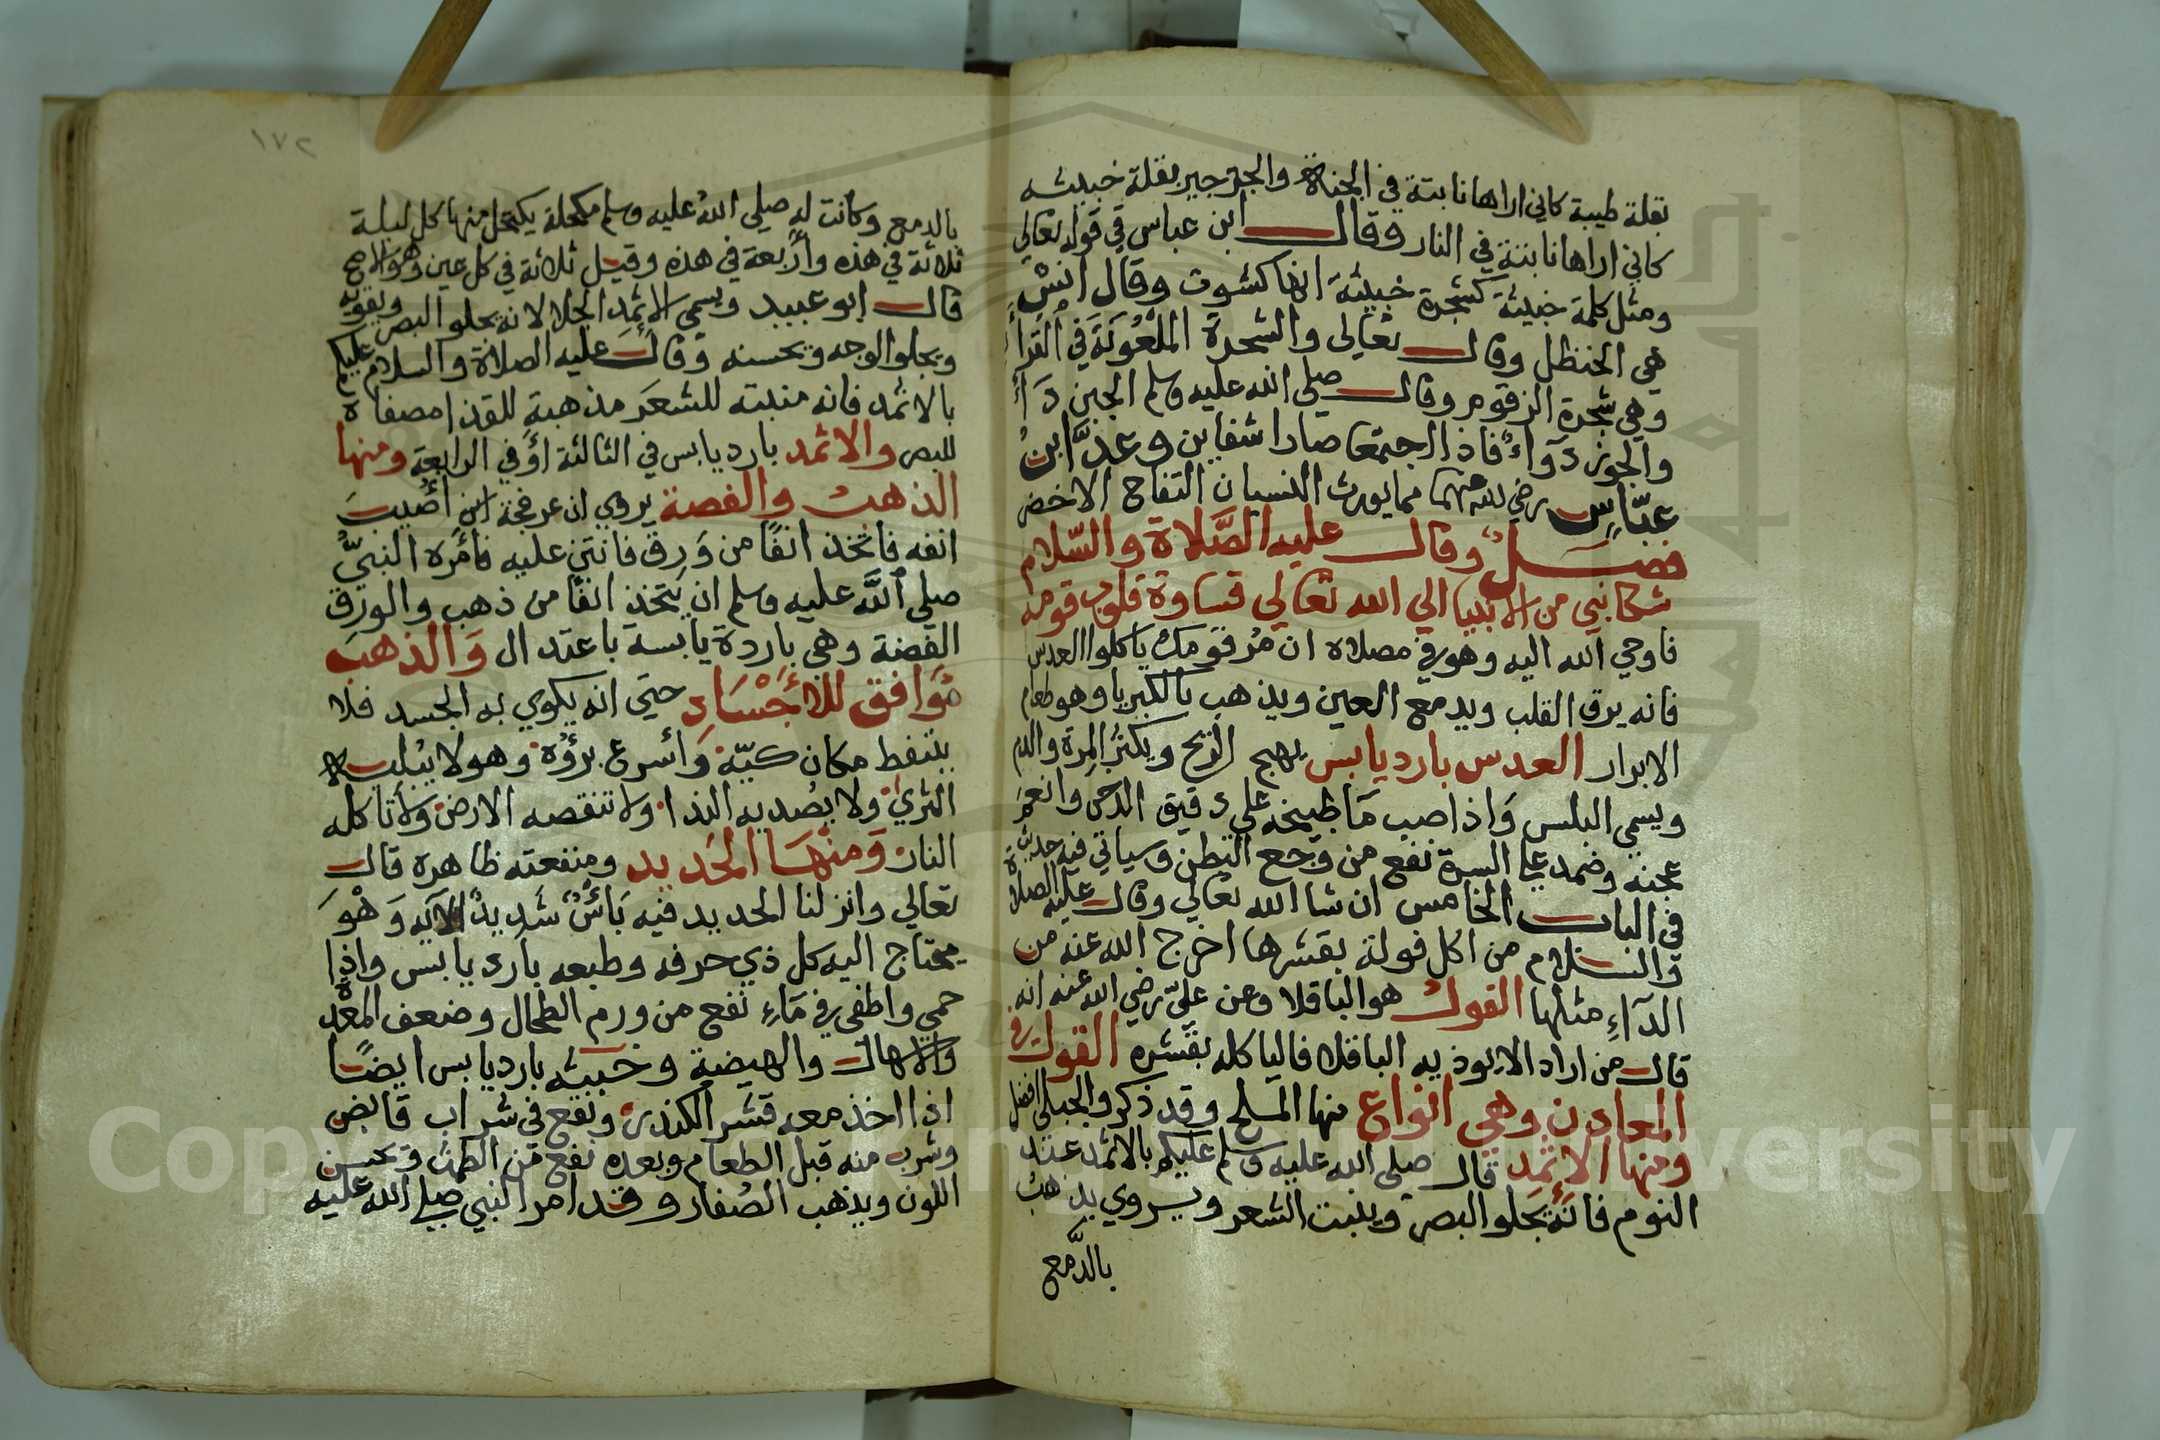 بقلة طيبة كاني اراها نابتة في الجنة والجرجير بقلة خبيثه
كاني اراها نابتة في النار وقال ابن عباس في قوله تعالي
ومثل كلمة خبيثة كشجرة خبيثة انها كشوت وقال انس
هي الحنظل وقال تعالى والشجرة الملعونة في القرأ
وهي شجرة الزقوم وقال صلى الله عليه وسلم الجبن دأ
والجوز دواء فاذا اجتمعا صارا شفاين وعد ابن
عباس رضي الله عنهما مما يورث النسيان التفاح الاخضر
فصل وقال عليه الصلاة والسلام
شكا نبي من الانبيا الي الله تعالي قساوة قلوب قومه
فاوحي الله اليه وهو في مصلاه ان مر قومك ياكلوا العدس
فانه يرق القلب ويدمع العين ويذهب بالكبريا وهو طعام
الابرار العدس بارد يابس يهيج الريح ويكثر المرة والدم
ويسمي البلس واذا صب ما طبيخه علي دقيق الدخن وانعم
عجنه وضمد علي السرة نفع من وجع البطن وسياتي فيه حديث
في الباب الخامس ان شا الله تعالي وقال عليه الصلاة
والسلام من اكل فولة بقشرها اخرج الله عنه من
الدآء مثلها الفول هو الباقلا وعن علي رضي الله عنه انه
قال من اراد الا يوذيه الباقلا فاليا كله بقشره القول في
المعادن وهي انواع منها الملح وقد ذكر والجبلي افضل
ومنها الاثمد قال صلى الله عليه وسلم عليكم بالاثمد عند
النوم فانه يجلو البصر وينبت الشعر ويروي يذهب
بالدمع
١٧٢
بالدمع وكانت له صلى الله عليه وسلم مكحلة يكتحل منها كل ليلة
ثلاثة في هذه وأربعة في هذه وقيل ثلاثة في كل عين وهو الاصح
قال ابو عبيد ويسمي الاثمد الجلا لانه يجلو البصر ويقويه
ويجلو الوجه ويحسنه وقال عليه الصلاة والسلام عليكم
بالاثمد فانه منبته للشعر مذهبة للقذا مصفاة
للبصر والاثمد بارد يابس في الثالثة أو في الرابعة ومنها
الذهب والفضة يروي ان عرفجة ابن أصيب
انفه فاتخذ انفا من ورق فانتن عليه فأمره النبي
صلى الله عليه وسلم ان يتخذ انفا من ذهب والورق
الفضة وهي باردة يابسة باعتدال والذهب
موافق للأجساد حتي انه يكوي به الجسد فلا
يتنفط مكان كيته وأسرع برؤه وهو لا يبليه
الثري ولا يصديه الندا ولا تنقصه الارض ولا تاكله
النار ومنها الحديد ومنفعته ظاهرة قال
تعالي وانزلنا الحديد فيه بأس شديد الايه وهو
يحتاج اليه كل ذي حرفه وطبعه بارد يابس واذا
حمي واطفي في مآء نفع من ورم الطحال وضعف المعدة
والاسهال والهيضة وخبيثه بارد يابس ايضا
اذا اخذ معه قشر الكندر ونقع في شراب قابض
وشرب منه قبل الطعام وبعده نفع من الطمث ويحسن
اللون ويذهب الصفار وقد امر النبي صلى الله عليه